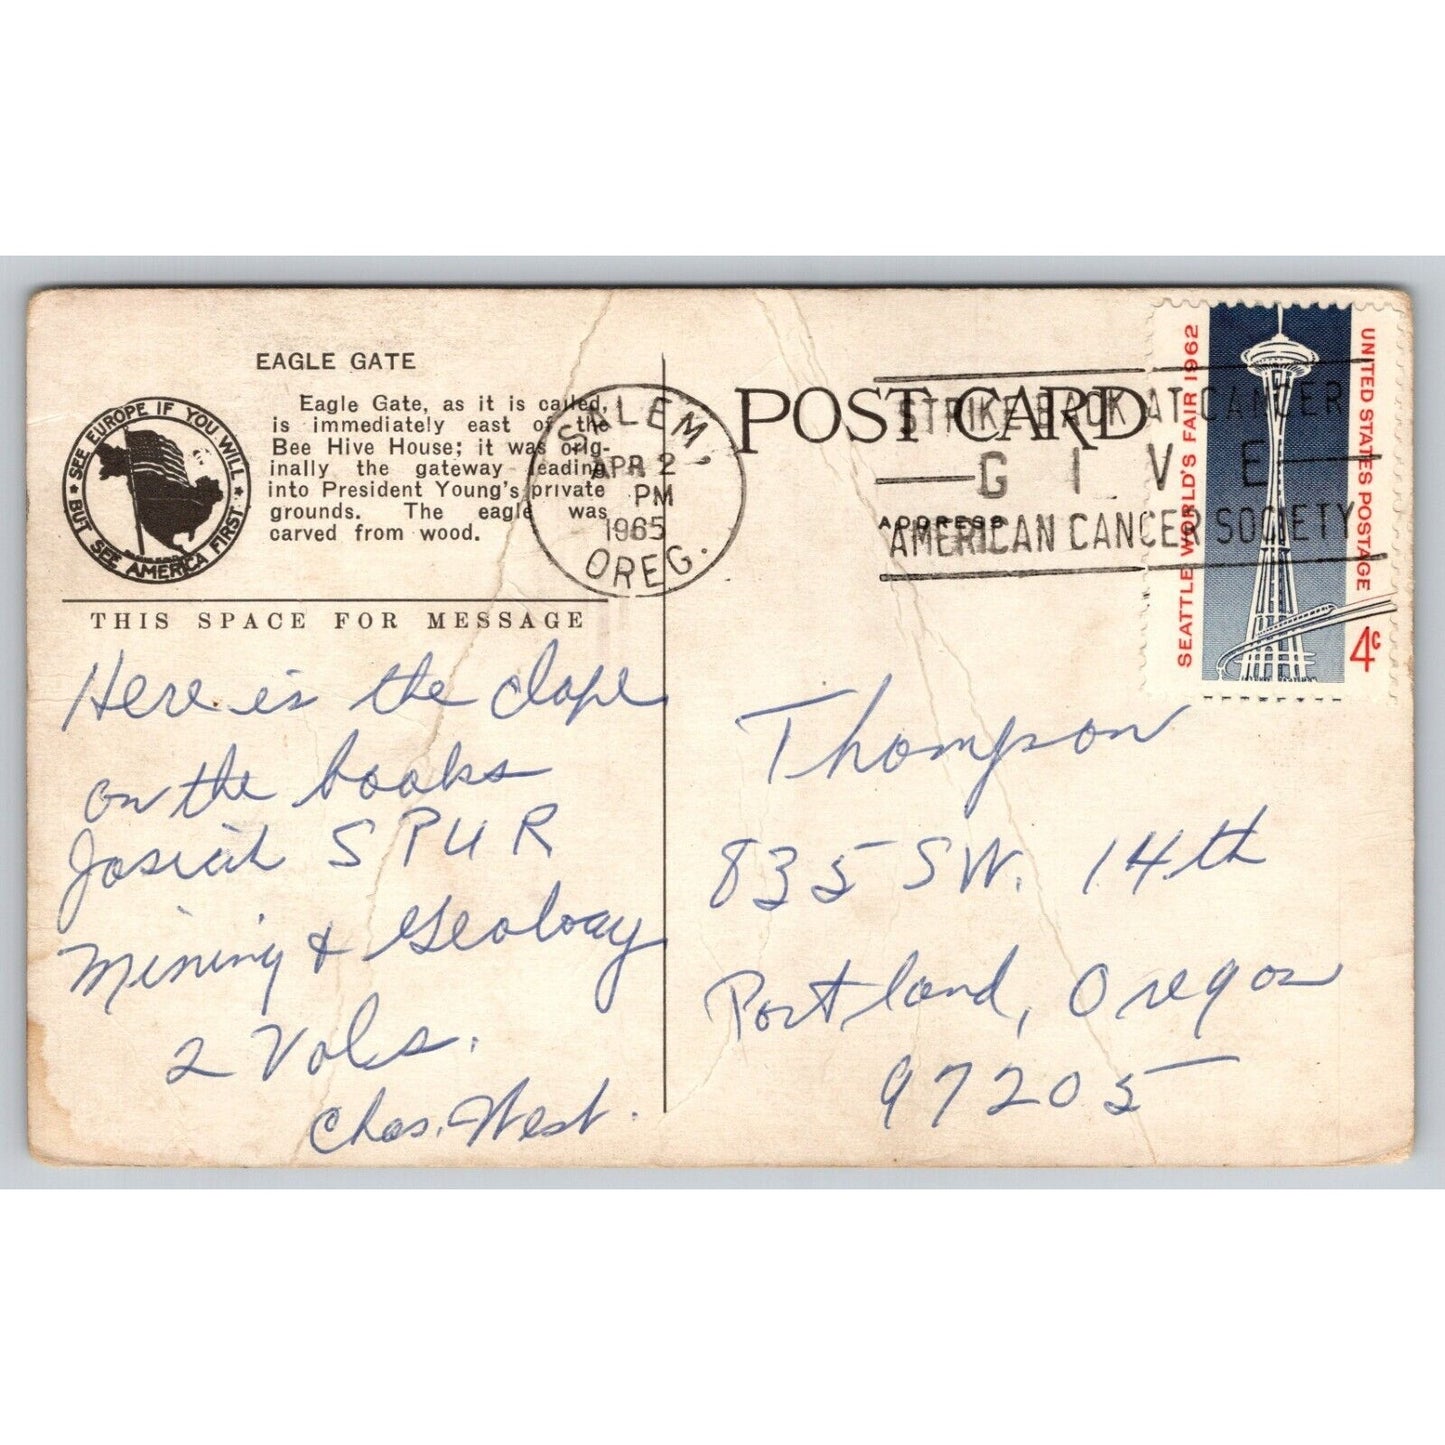 EAGLE GATE
Eagle Gate, as it is called,
is immediately east of the
Bee Hive House; it was orig-
inally the gateway leading
into President Young's private
grounds. The eagle was
carved from wood.
★ SEE EUROPE IF YOU WILL ★
BUT SEE AMERICA FIRST
THIS SPACE FOR MESSAGE
Here is the dope
on the books
Josiah SPUR
Mining & Geology
2 Vols.
Chas. West.
SALEM,
APR 2
PM
1965
OREG.
POST CARD
ADDRESS
STRIKE BACK AT CANCER
GIVE
AMERICAN CANCER SOCIETY
SEATTLE WORLD'S FAIR 1962
UNITED STATES POSTAGE
4c
Thompson
835 SW. 14th
Portland, Oregon
97205